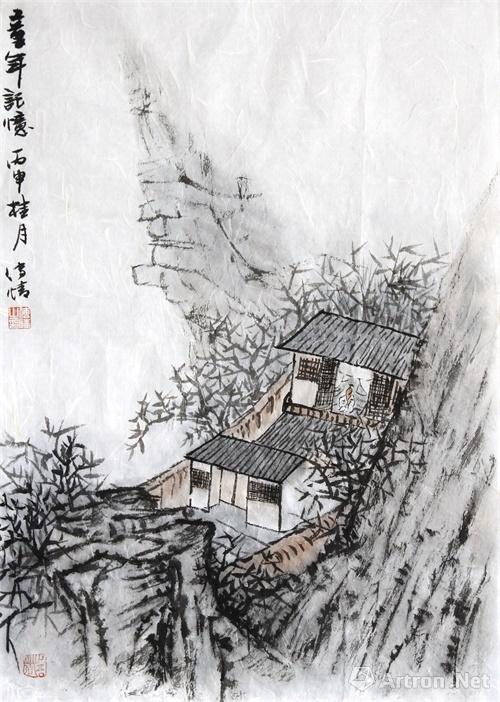 童年記憶 丙申桂月 传情
Artron.Net